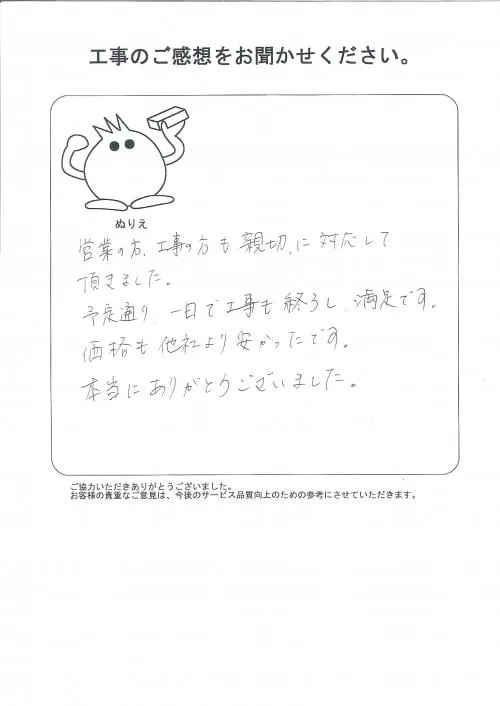 工事のご感想をお聞かせください。
ぬりえ
営業の方、工事の方も親切、に対応して
頂きました。
予定通り、一日で工事も終うし、満足です。
価格も他社より安かったです。
本当にありがとうございました。
ご協力いただきありがとうございました。
お客様の貴重なご意見は、今後のサービス品質向上のための参考にさせていただきます。